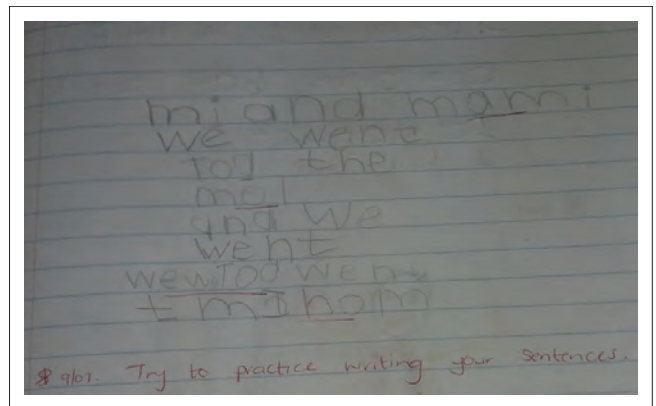 mi and mami
we went
tod the
mal
and we
went
we wTod went
t mI hom
9/07. Try to practice writing your sentences.